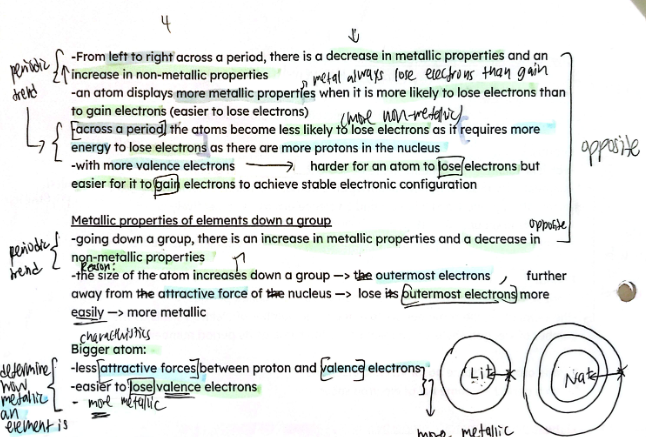 4
-From left to right across a period, there is a decrease in metallic properties and an
periodic trend
increase in non-metallic properties
metal always lose electrons than gain
-an atom displays more metallic properties when it is more likely to lose electrons than
to gain electrons (easier to lose electrons)
(more non-metallic)
[across a period] the atoms become less likely to lose electrons as it requires more
energy to lose electrons as there are more protons in the nucleus
opposite
-with more valence electrons → harder for an atom to lose electrons but
easier for it to gain electrons to achieve stable electronic configuration
Metallic properties of elements down a group
opposite
-going down a group, there is an increase in metallic properties and a decrease in
periodic trend
non-metallic properties
Reason:
-the size of the atom increases down a group —> the outermost electrons, further
away from the attractive force of the nucleus —> lose its outermost electrons more
easily —> more metallic
characteristics
Bigger atom:
-less [attractive forces] between proton and [valence] electrons
determine how metallic an element is
-easier to lose valence electrons
- more metallic
Li+
Na+
more metallic